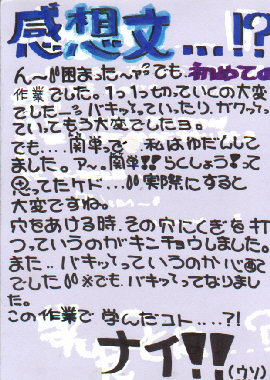 感想文....!?
ん〜!!困まった〜ァ°でも、初めての
作業でした。1つ1つもっていくの大変
でした―。バキッてっていったり、ガクッてっ
ていってもう大変でしたョ。
でも...簡単って 私はゆだんして
ました。ア〜、簡単!!らくしょう!って
思ってたケド...!!実際にすると
大変ですね。
穴をあける時、その穴にくぎを打
つっていうのがキンチョウしました。
また、バキッてっていうのが心配
でした!!※でも、バキッてってなりまし
た。
この作業で 学んだコト....?!
ナイ!!(ウソ)